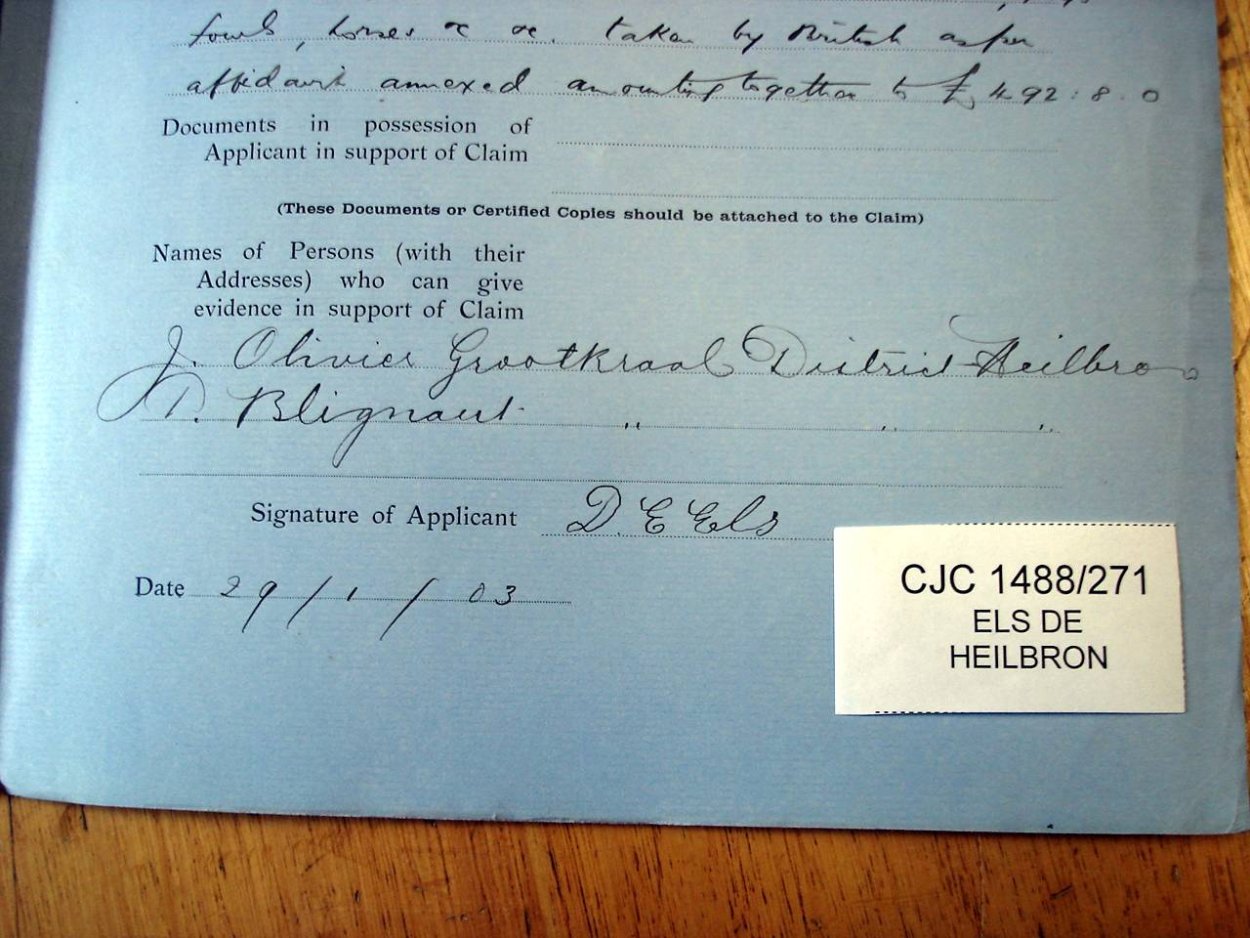 fowls, horses &c &c. taken by British as per
affidavit annexed amounting together to £492:8.0
Documents in possession of
Applicant in support of Claim
(These Documents or Certified Copies should be attached to the Claim)
Names of Persons (with their
Addresses) who can give
evidence in support of Claim
J. Olivier Grootkraal District Heilbron
D. Blignaut „ „ „
Signature of Applicant D E Els
Date 29/1/03
CJC 1488/271
ELS DE
HEILBRON